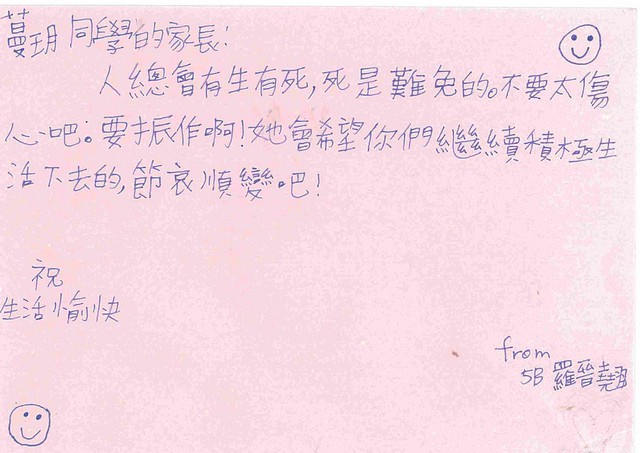 蔓玥同學的家長:
人總會有生有死,死是難免的。不要太傷
心吧。要振作啊!她會希望你們繼續積極生
活下去的,節哀順變吧!
祝
生活愉快
from
5B 羅晉翹